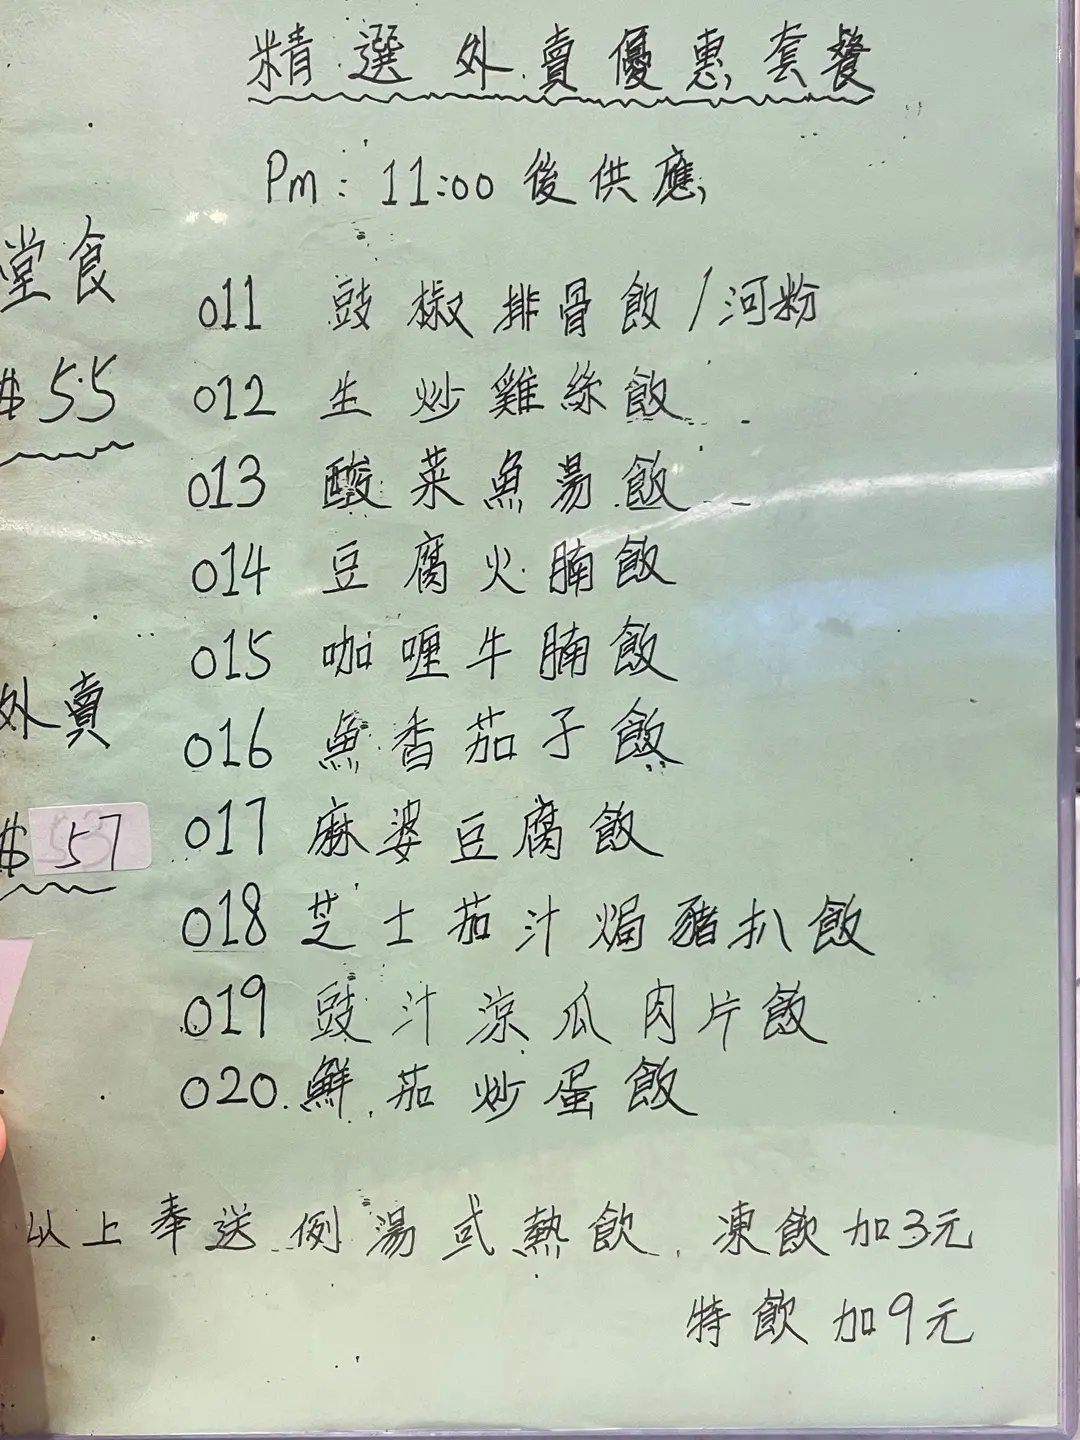 精選外賣優惠套餐
Pm：11:00後供應
堂食
$55
外賣
$57
011 豉椒排骨飯/河粉
012 生炒雞絲飯
013 酸菜魚湯飯
014 豆腐火腩飯
015 咖喱牛腩飯
016 魚香茄子飯
017 麻婆豆腐飯
018 芝士茄汁焗豬扒飯
019 豉汁涼瓜肉片飯
020 鮮茄炒蛋飯
以上奉送例湯或熱飲，凍飲加3元
特飲加9元